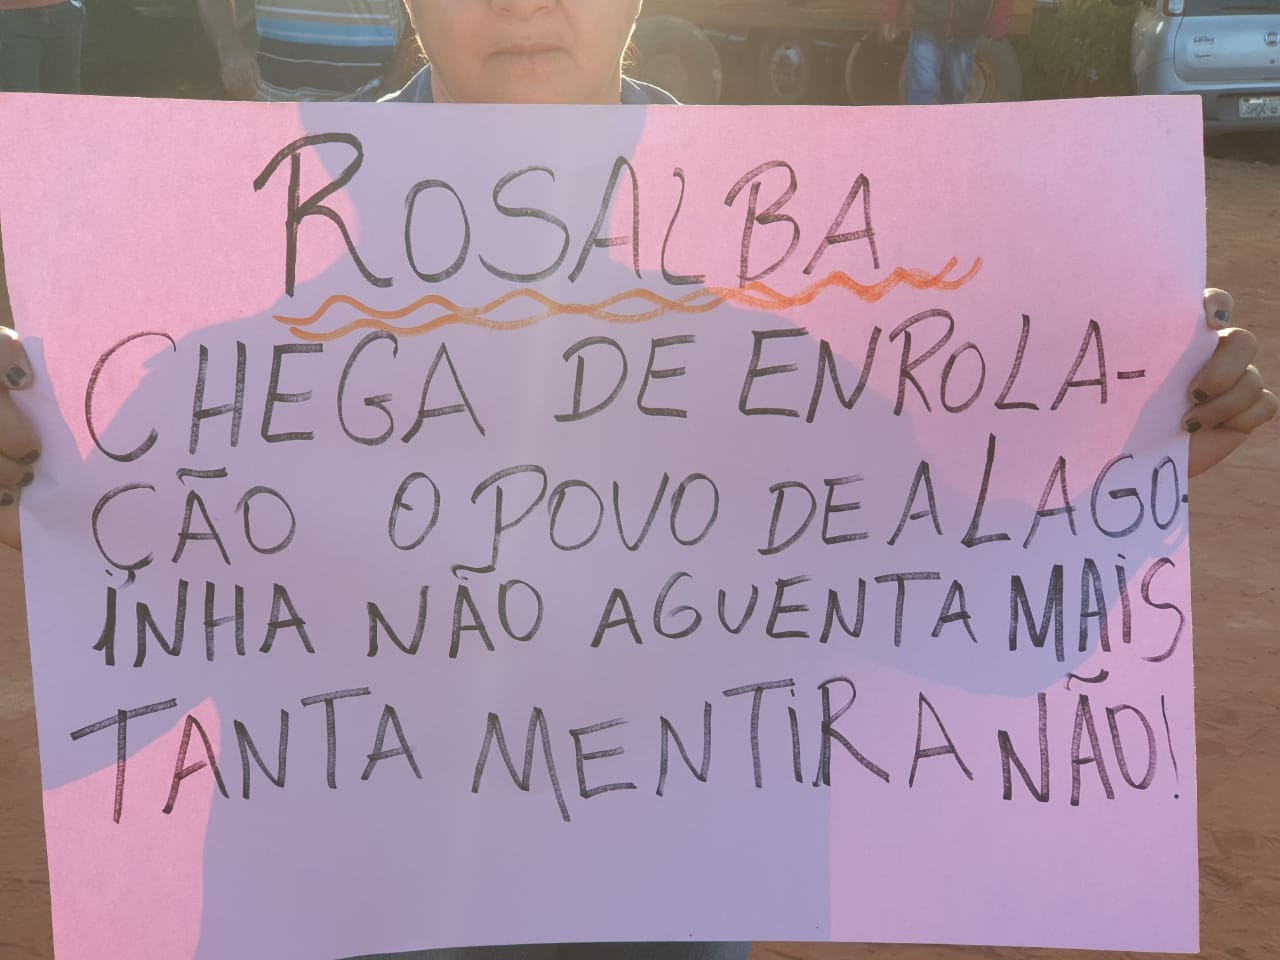 ROSALBA
CHEGA DE ENROLA-
ÇÃO O POVO DE ALAGO-
INHA NÃO AGUENTA MAIS
TANTA MENTIRA NÃO!